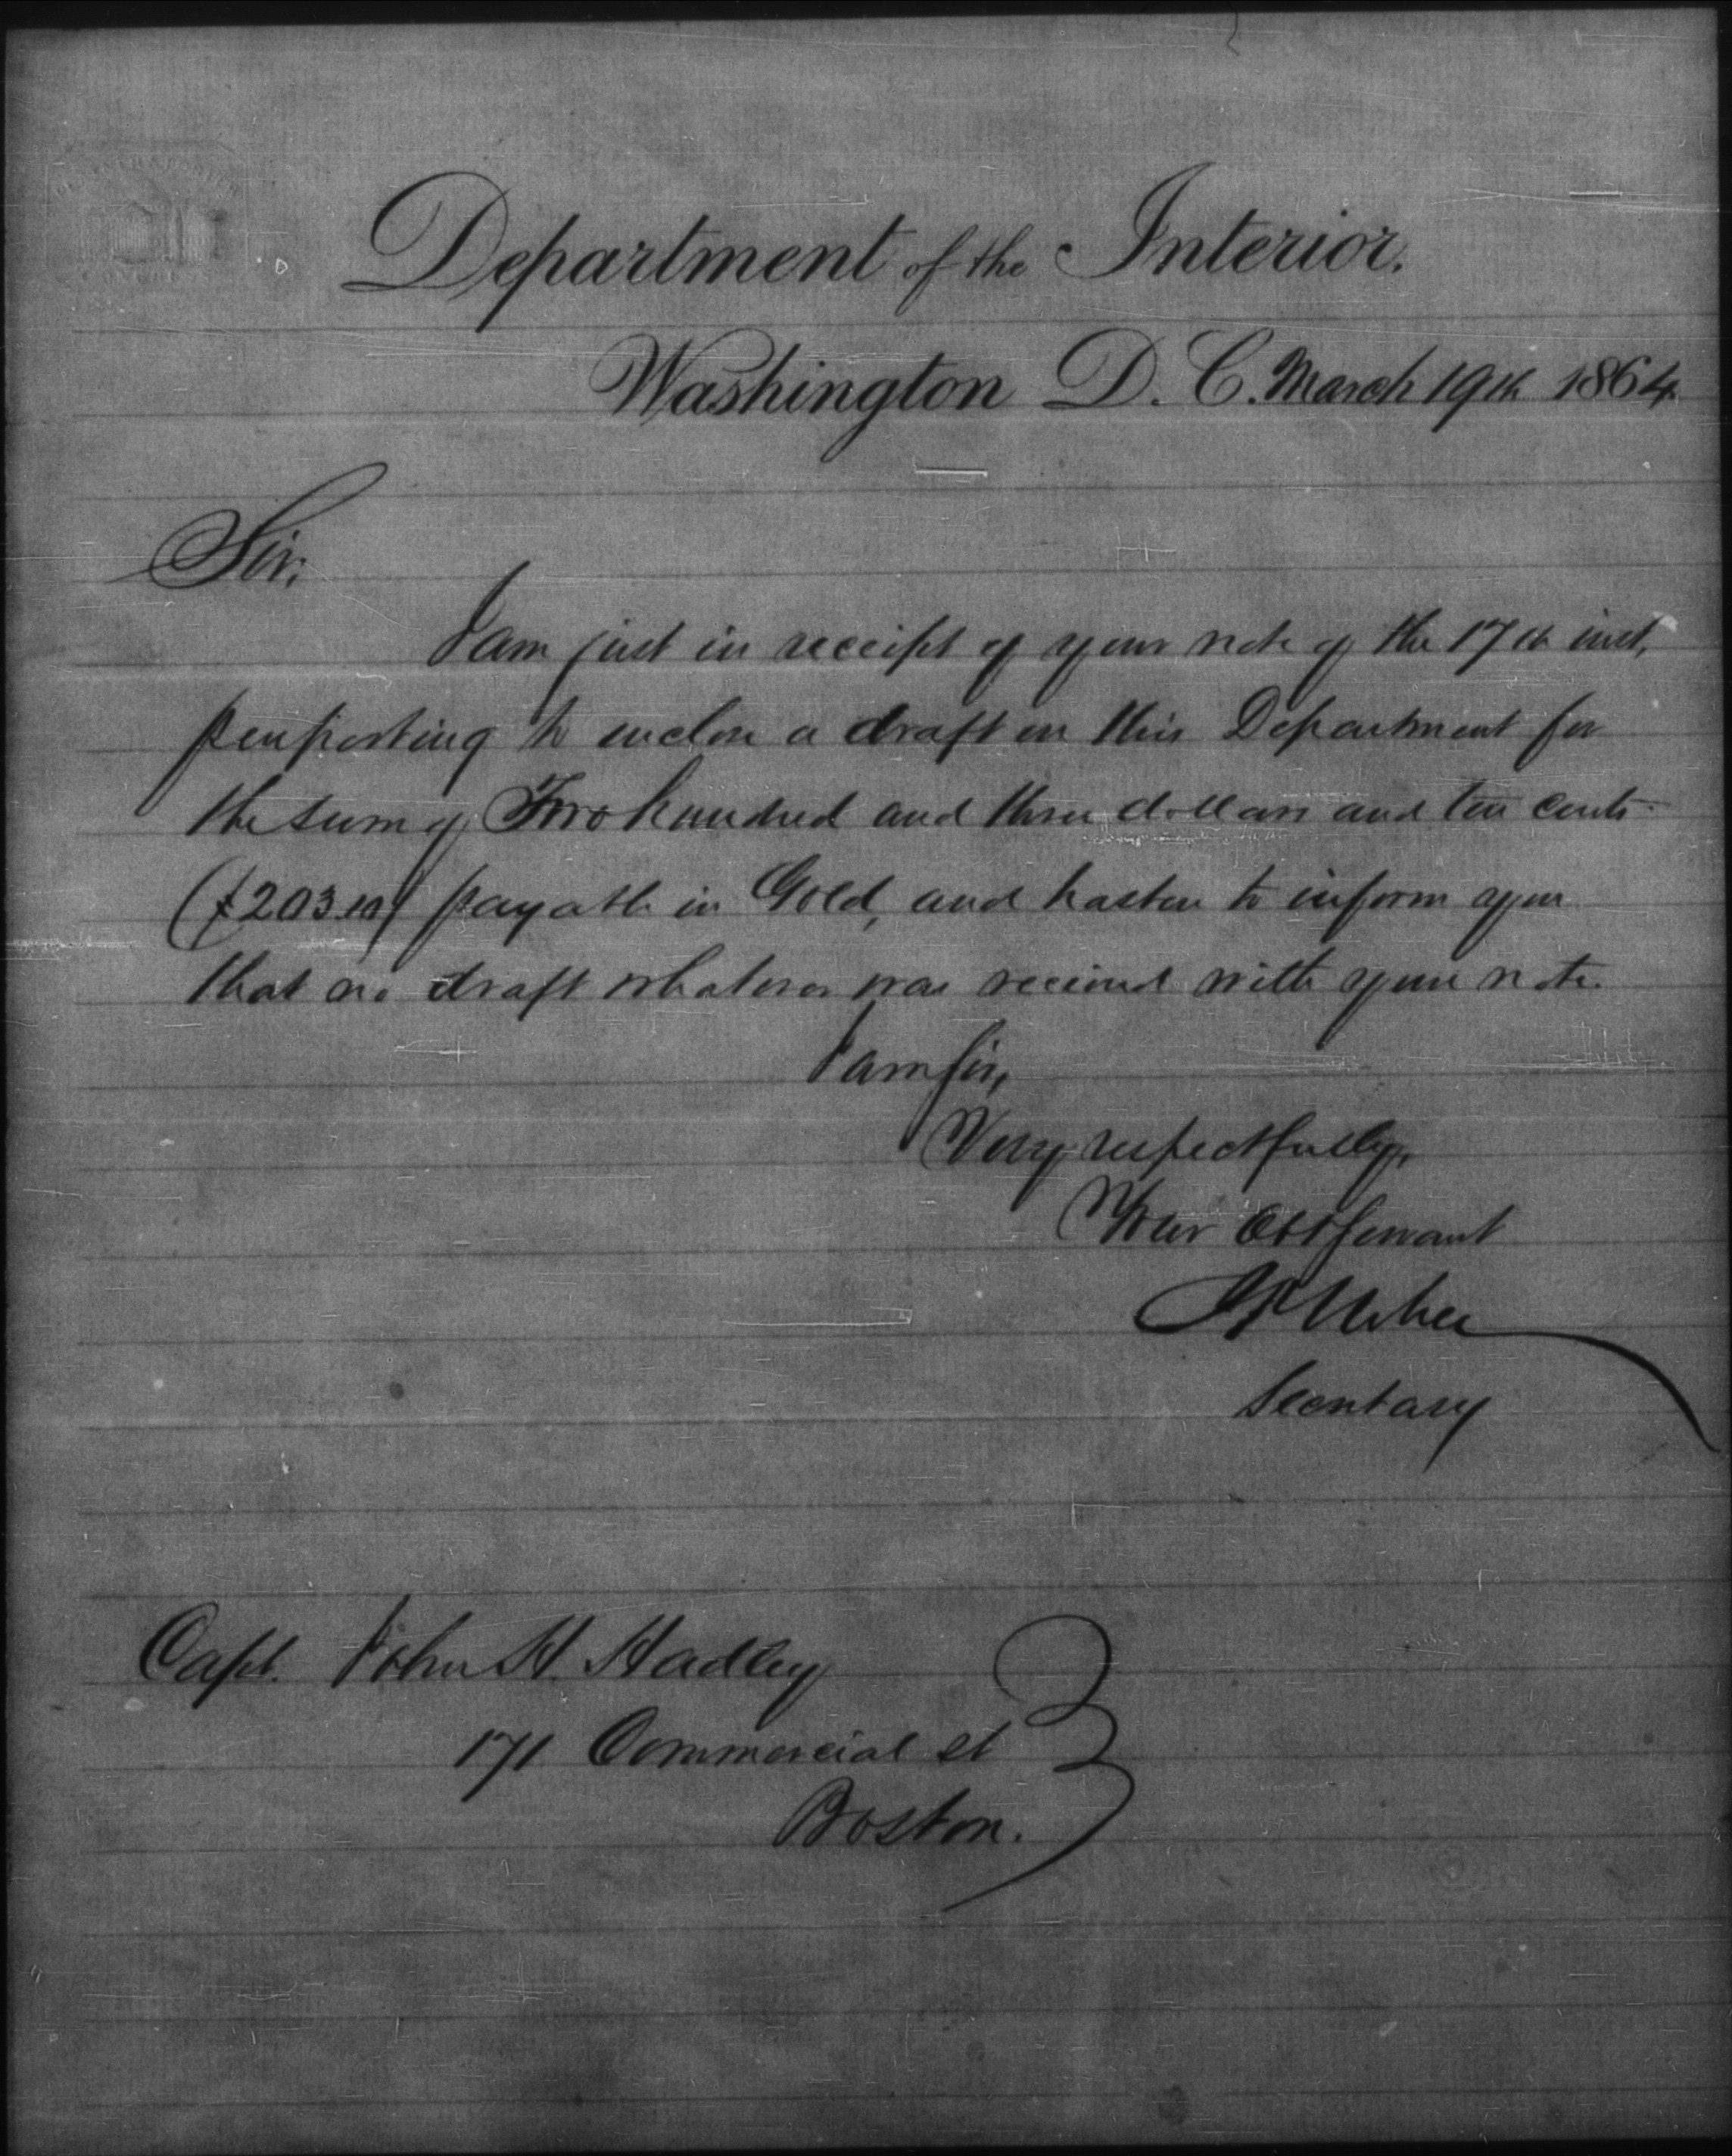 Department of the Interior.
Washington D. C. March 19th 1864
Sir:
I am just in receipt of your note of the 17th inst,
purporting to enclose a draft on this Department for
the sum of Two hundred and three dollars and ten cents
($203.10) payable in Gold, and hasten to inform you
that no draft whatever was received with your note.
I am Sir,
Very respectfully,
Your Obt Servant
J P Usher
Secretary
Capt. John H. Hadley
171 Commercial st
Boston.